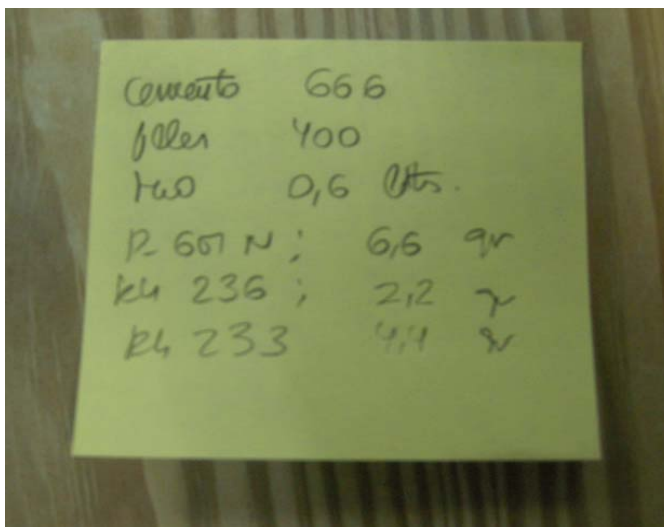 cemento 666
filler 400
H2O 0,6 lts.
P-601 N ; 6,6 gr
R4 236 ; 2,2 gr
R4 233 4,4 gr